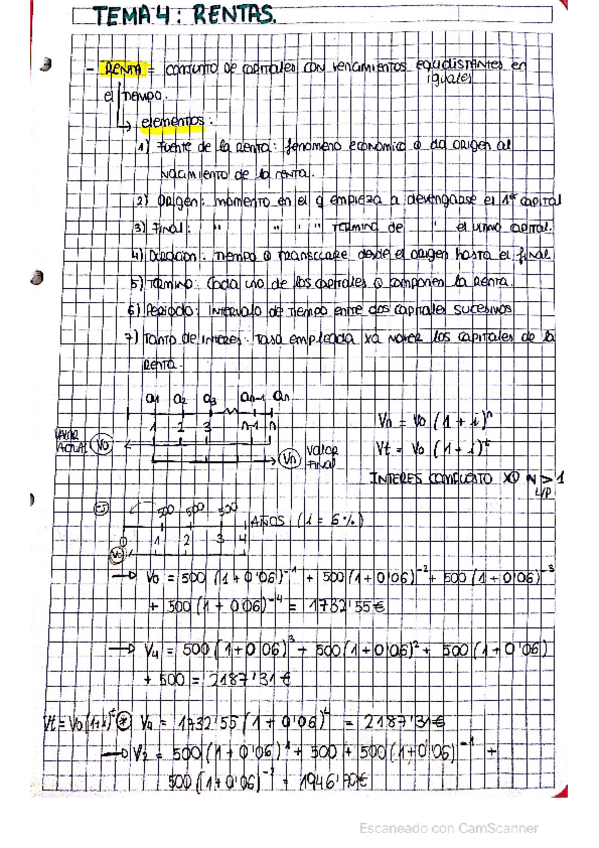 TEMA 4: RENTAS.
- RENTA = CONJUNTO DE CAPITALES CON VENCIMIENTOS equidistantes en
iguales
el tiempo.
↳ elementos:
1) Fuente de la renta: fenómeno económico q da origen al
nacimiento de la renta.
2) Origen: momento en el q empieza a devengarse el 1er capital
3) Final: " " " " TERMINA DE " el último capital.
4) Duración: Tiempo q transcurre desde el origen hasta el final.
5) Término: Cada uno de los capitales q componen la renta.
6) Período: Intervalo de tiempo entre dos capitales sucesivos
7) Tanto de interés: tasa empleada xa mover los capitales de la
renta.
a1 a2 a3 an-1 an
1 2 3 n-1 n
VALOR ACTUAL V0
Vn VALOR FINAL
Vn = V0 (1+i)^n
Vt = V0 (1+i)^t
INTERES COMPUESTO XQ N > 1
L/P
500 500 500
0 1 2 3 4 AÑOS (i = 6%)
V0
→ V0 = 500 (1+0'06)^-1 + 500 (1+0'06)^-2 + 500 (1+0'06)^-3
+ 500 (1+0'06)^-4 = 1732'55€
→ V4 = 500 (1+0'06)^3 + 500 (1+0'06)^2 + 500 (1+0'06)
+ 500 = 2187'31€
Vt = V0 (1+i)^t * V4 = 1732'55 (1+0'06)^4 = 2187'31€
→ V2 = 500 (1+0'06)^1 + 500 + 500 (1+0'06)^-1 +
500 (1+0'06)^-2 = 1946'70€
Escaneado con CamScanner